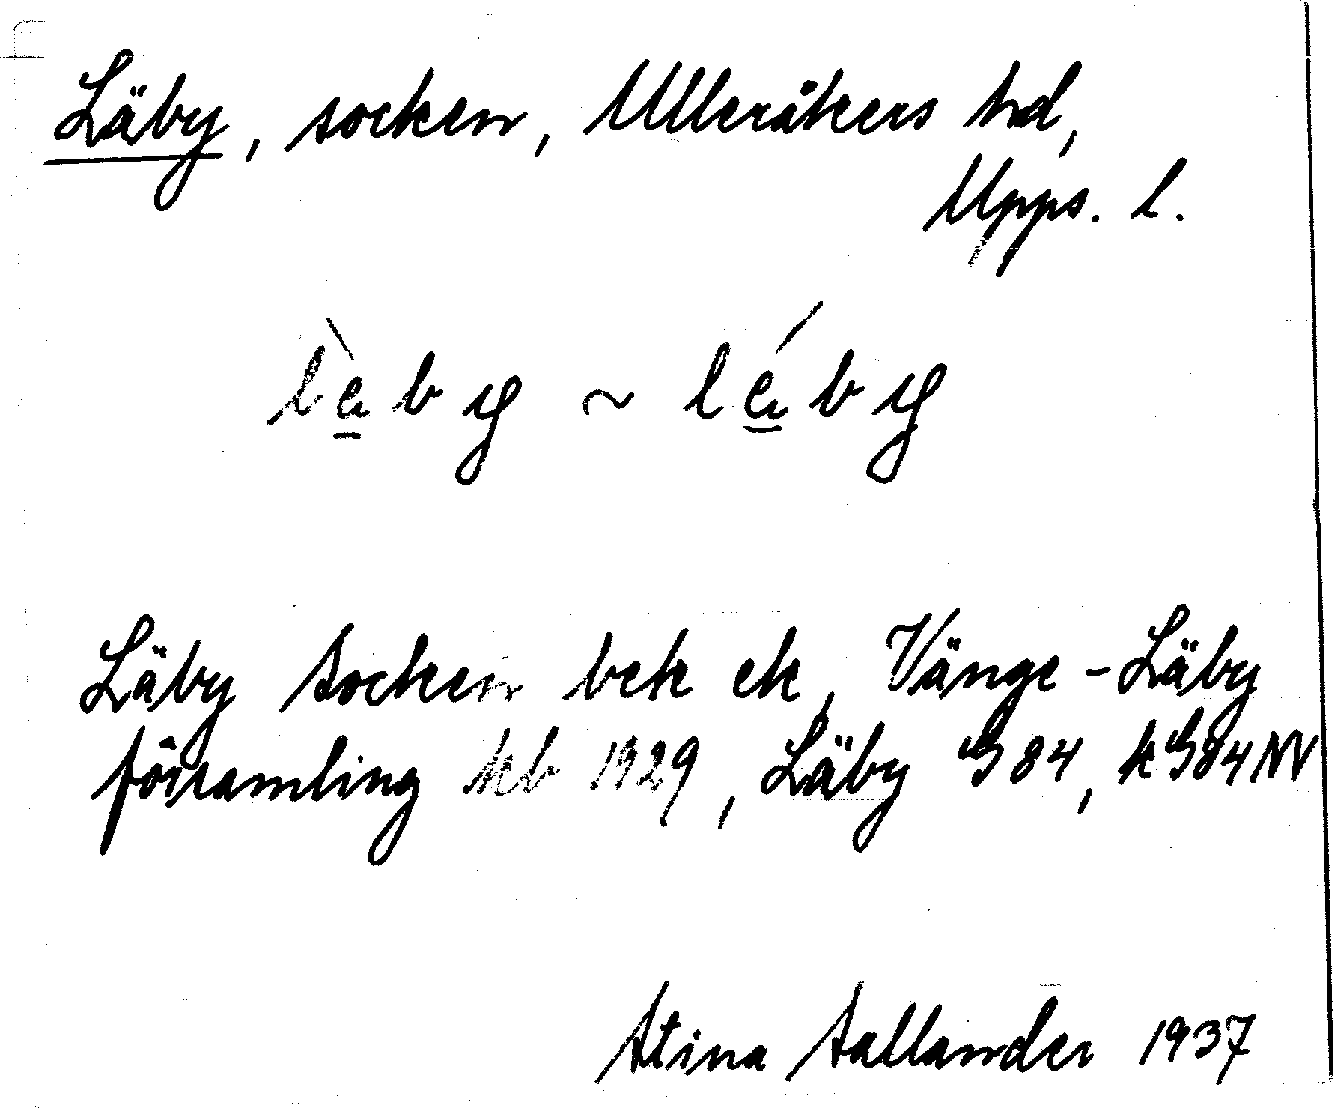 Läby, socken, Ulleråkers hd,
Upps. l.
làby ~ láby
Läby socken bek ek, Vänge-Läby
församling kb 1929, Läby G 84, kG84NV
Stina Sallander 1937